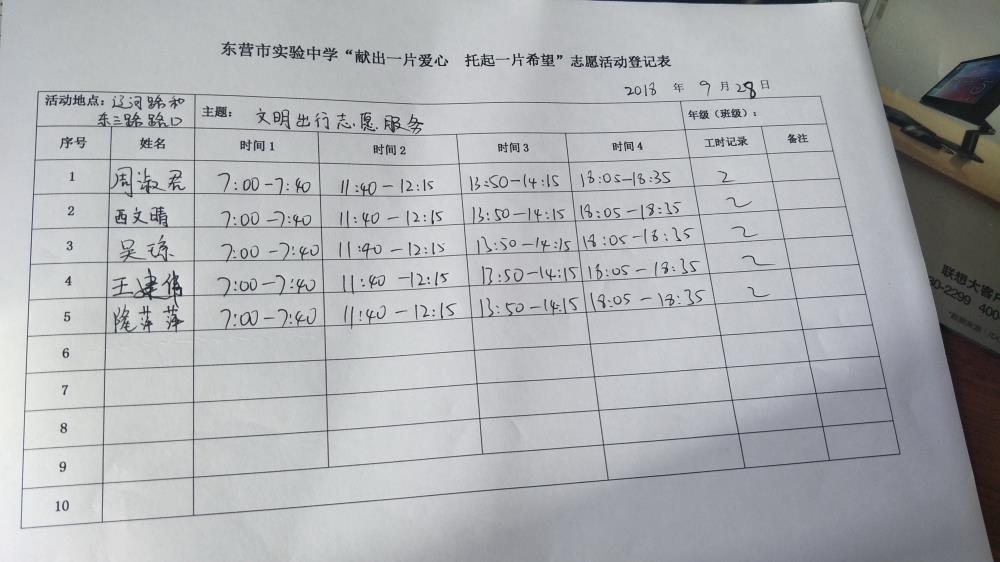 东营市实验中学“献出一片爱心 托起一片希望”志愿活动登记表
2018 年 9 月 28 日
活动地点：辽河路和
东三路路口
主题： 文明出行志愿服务
年级（班级）：
序号 姓名 时间1 时间2 时间3 时间4 工时记录 备注
1 周淑君 7:00-7:40 11:40-12:15 13:50-14:15 18:05-18:35 2
2 西文晴 7:00-7:40 11:40-12:15 13:50-14:15 18:05-18:35 2
3 吴琼 7:00-7:40 11:40-12:15 13:50-14:15 18:05-18:35 2
4 王建伟 7:00-7:40 11:40-12:15 13:50-14:15 18:05-18:35 2
5 隆萍萍 7:00-7:40 11:40-12:15 13:50-14:15 18:05-18:35 2
6
7
8
9
10
联想大客户
2299 400